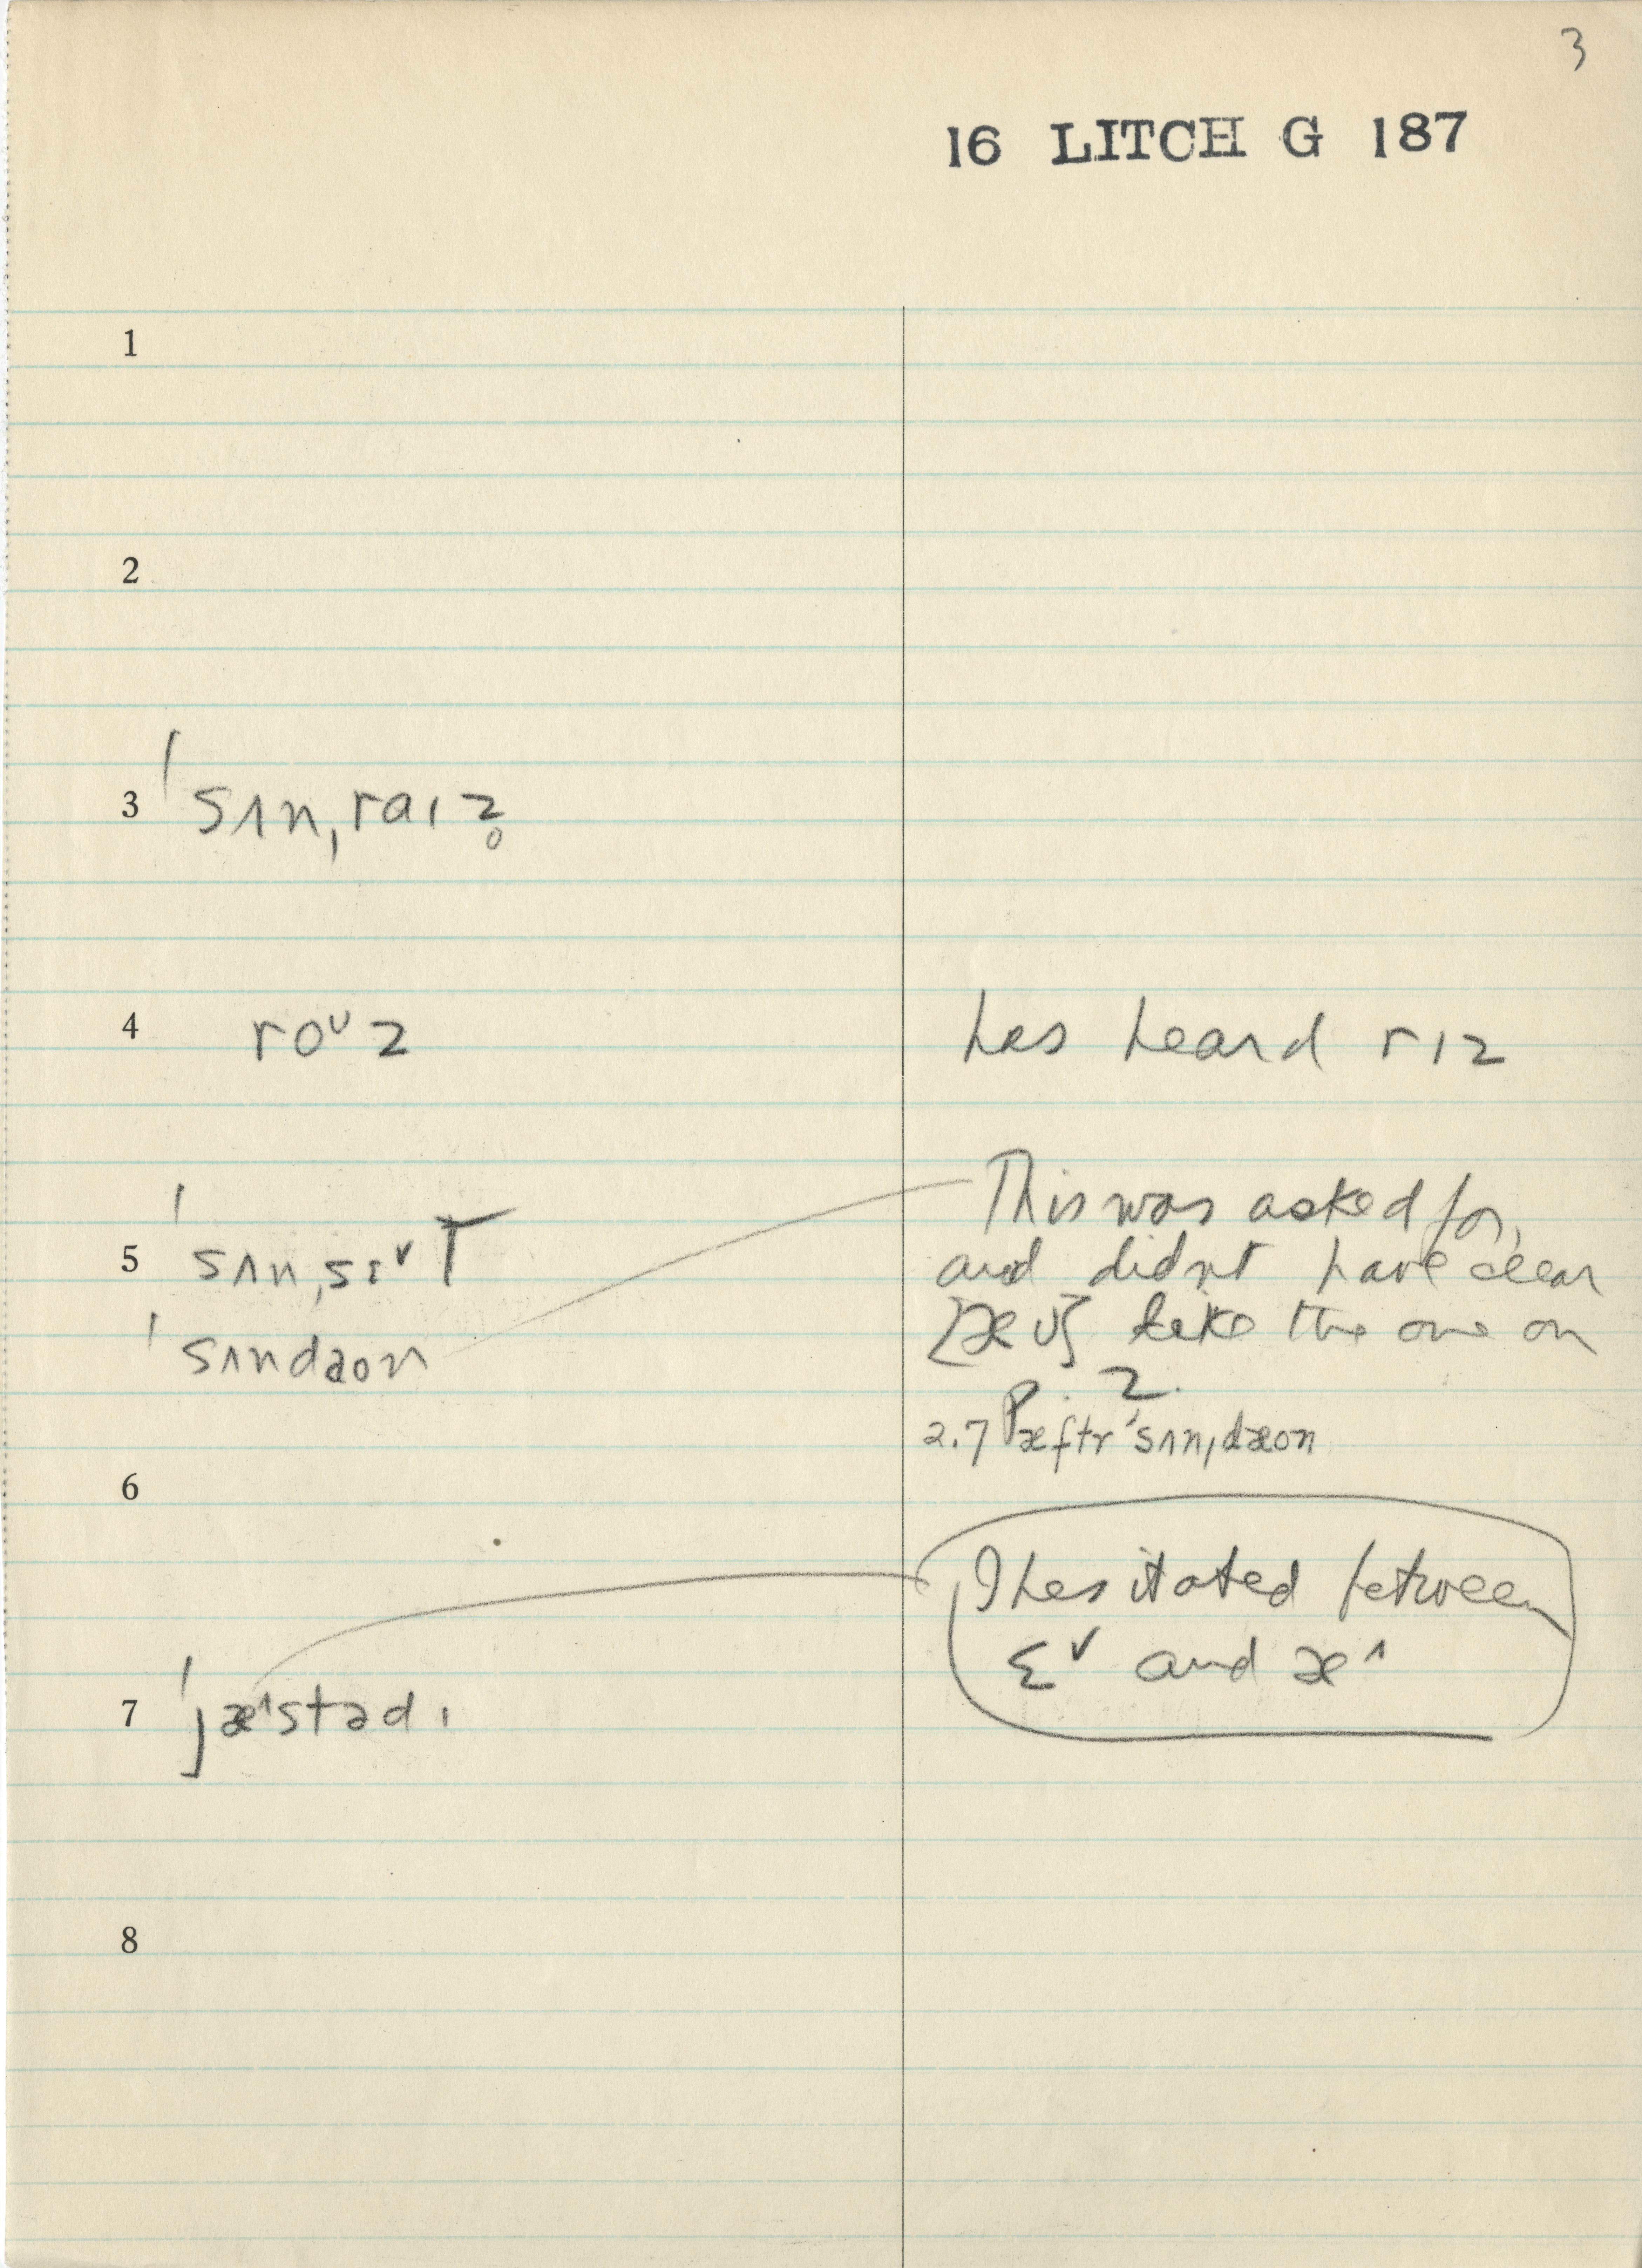 3
16 LITCH G 187
1
2
3 ˈsʌnˌraɪz̥
4 roᴜz has heard rɪz
5 ˈsʌnˌsɛ˅T This was asked for,
and didn't have clear
ˈsʌndaʊn [æʊ] like the one on
P. 2.
2.7 æftr ˈsʌnˌdæʊn
6
I hesitated between
ɛ˅ and æ^
7 ˈjæ^stədɪ
8